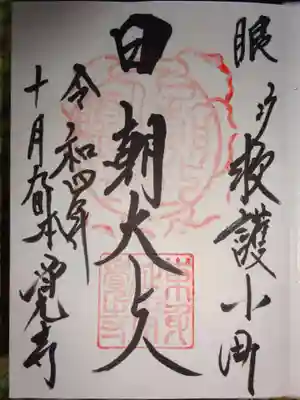 眼病救護小町
日朝大上人
令和四年
十月九日本覚寺